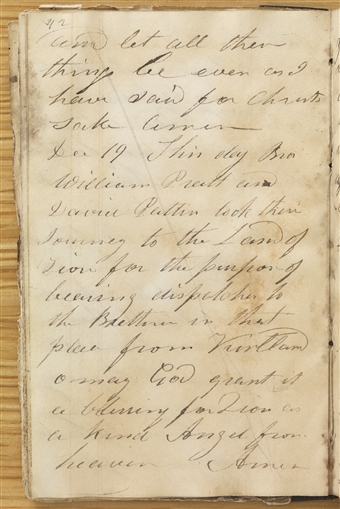 42
and let all these
things be even as I
have said for Christs
sake Amen
Dec 19 This day Bro
William Pratt and
David Patten took their
Journey to the Land of
Zion for the purpose of
bearing dispatches to
the Brethren in that
place from Kirtland
o may God grant it
a blessing for Zion as
a kind Angel from
heaven Amen